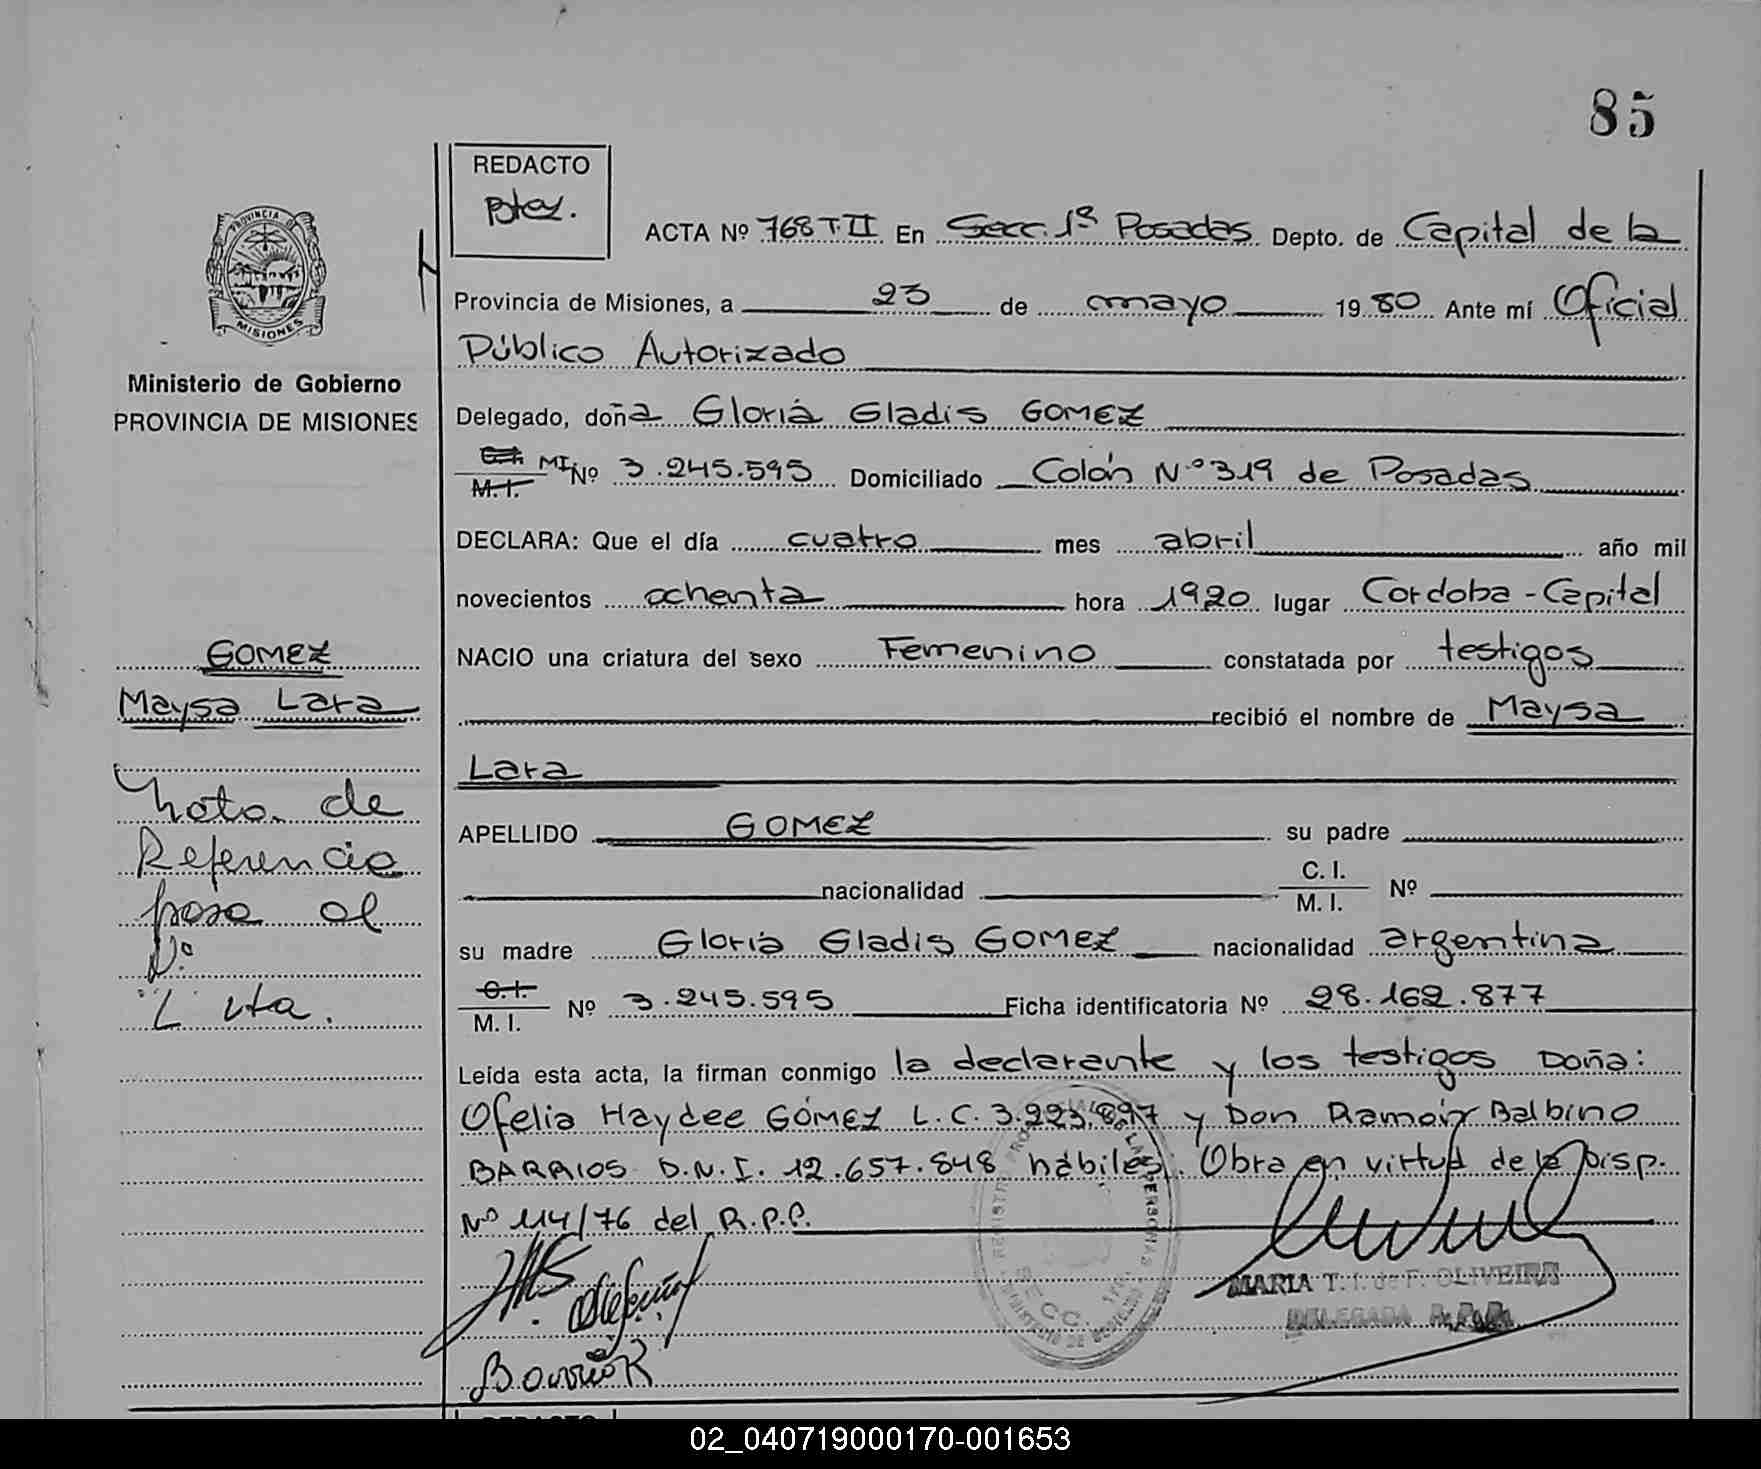 85
REDACTO
ACTA Nº 768 T.II En Secc. 1ª Posadas Depto. de Capital de la
PROVINCIA DE
MISIONES
Provincia de Misiones, a 23 de mayo 1980 Ante mí Oficial
Público Autorizado
Ministerio de Gobierno
PROVINCIA DE MISIONES
Delegado, doña Gloria Gladis GOMEZ
C.I. MI Nº 3.245.595 Domiciliado Colón Nº 319 de Posadas
M.I.
DECLARA: Que el día cuatro mes abril año mil
novecientos ochenta hora 1920 lugar Cordoba - Capital
GOMEZ
NACIO una criatura del sexo Femenino constatada por testigos
Maysa Lara
recibió el nombre de Maysa
Lara
Nota de
APELLIDO GOMEZ su padre
Referencia
nacionalidad C. I. Nº
M. I.
pasa al
su madre Gloria Gladis GOMEZ nacionalidad argentina
C.I. Nº 3.245.595 Ficha identificatoria Nº 28.162.877
M. I.
Leída esta acta, la firman conmigo la declarante y los testigos Doña:
Ofelia Haydee GÓMEZ L.C. 3.223.897 y Don Ramón Balbino
BARRIOS D.N.I. 12.657.848 hábiles. Obra en virtud de la Disp.
Nº 114/76 del R.P.P.
MARIA T. I. de F. OLIVEIRA
DELEGADA R.P.P.
Barrios R
REDACTO
02_040719000170-001653